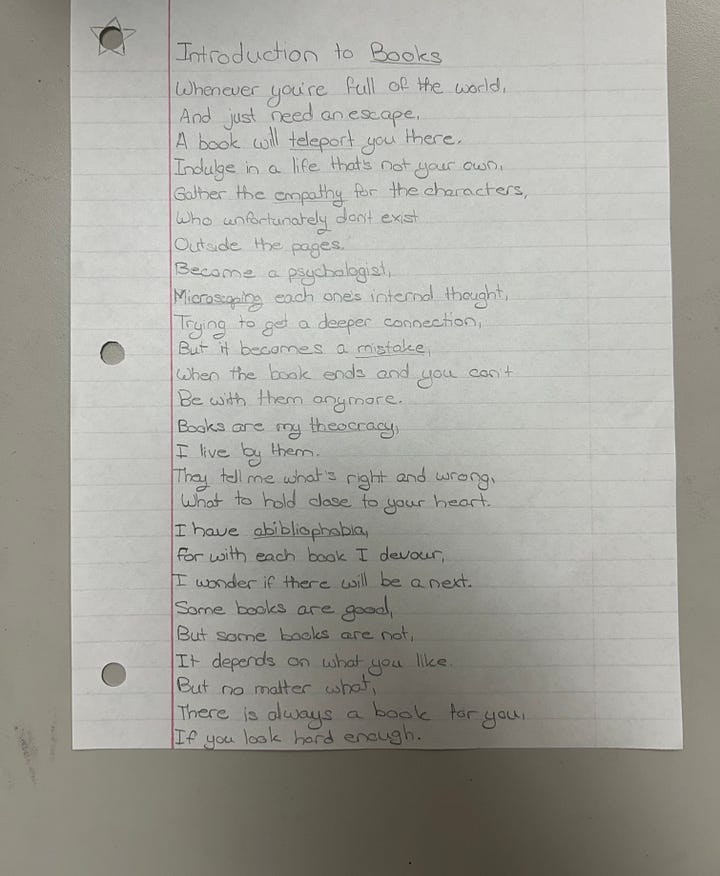 Introduction to Books
Whenever you're full of the world,
And just need an escape,
A book will teleport you there.
Indulge in a life that's not your own.
Gather the empathy for the characters,
Who unfortunately don't exist
Outside the pages.
Become a psychologist,
Microscoping each one's internal thought,
Trying to get a deeper connection,
But it becomes a mistake,
When the book ends and you can't
Be with them anymore.
Books are my theocracy,
I live by them.
They tell me what's right and wrong,
What to hold close to your heart.
I have abibliophobia,
For with each book I devour,
I wonder if there will be a next.
Some books are good,
But some books are not,
It depends on what you like.
But no matter what,
There is always a book for you,
If you look hard enough.